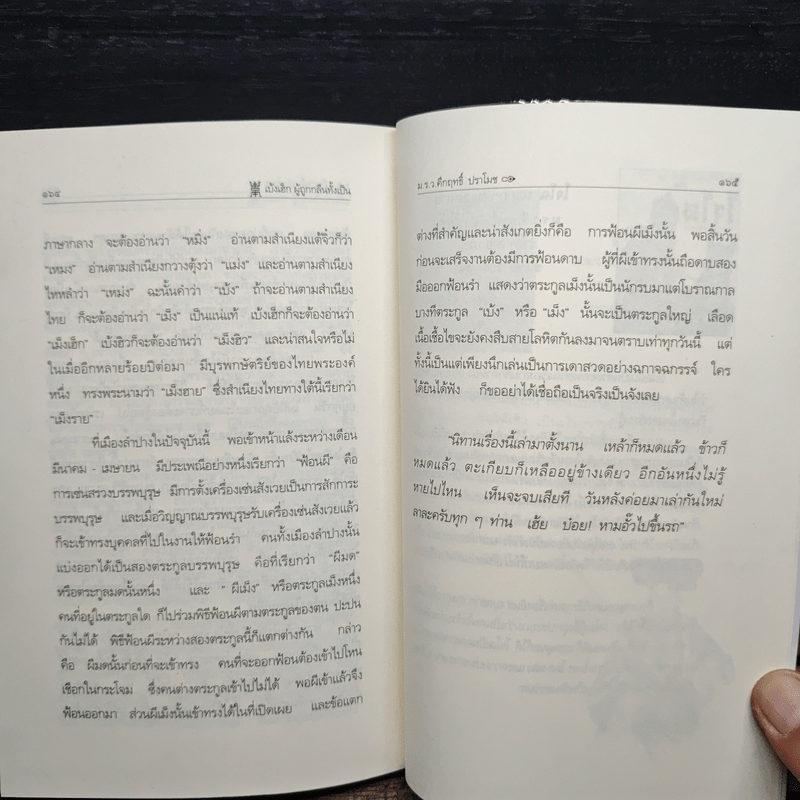 ๑๖๔ เบ้งเฮ็ก ผู้ถูกกลืนทั้งเป็น
ภาษากลาง จะต้องอ่านว่า “หมิ่ง” อ่านตามสำเนียงแต้จิ๋วก็ว่า
“เหมง” อ่านตามสำเนียงกวางตุ้งว่า “แม่ง” และอ่านตามสำเนียง
ไหหลำว่า “เหม่ง” ฉะนั้นคำว่า “เบ้ง” ถ้าจะอ่านตามสำเนียง
ไทย ก็จะต้องอ่านว่า “เม็ง” เป็นแน่แท้ เบ้งเฮ็กก็จะต้องอ่านว่า
“เม็งเฮ็ก” เบ้งฮัวก็จะต้องอ่านว่า “เม็งฮัว” และน่าสนใจหรือไม่
ในเมื่ออีกหลายร้อยปีต่อมา มีบุรพกษัตริย์ของไทยพระองค์
หนึ่ง ทรงพระนามว่า “เม็งฮาย” ซึ่งสำเนียงไทยทางใต้นี้เรียกว่า
“เม็งราย”
ที่เมืองลำปางในปัจจุบันนี้ พอเข้าหน้าแล้งระหว่างเดือน
มีนาคม - เมษายน มีประเพณีอย่างหนึ่งเรียกว่า “ฟ้อนผี” คือ
การเซ่นสรวงบรรพบุรุษ มีการตั้งเครื่องเซ่นสังเวยเป็นการสักการะ
บรรพบุรุษ และเมื่อวิญญาณบรรพบุรุษรับเครื่องเซ่นสังเวยแล้ว
ก็จะเข้าทรงบุคคลที่ไปในงานให้ฟ้อนรำ คนทั้งเมืองลำปางนั้น
แบ่งออกได้เป็นสองตระกูลบรรพบุรุษ คือที่เรียกว่า “ผีมด”
หรือตระกูลมดนั้นหนึ่ง และ “ผีเม็ง” หรือตระกูลเม็งหนึ่ง
คนที่อยู่ในตระกูลใด ก็ไปร่วมพิธีฟ้อนผีตามตระกูลของตน ปะปน
กันไม่ได้ พิธีฟ้อนผีระหว่างสองตระกูลนี้ก็แตกต่างกัน กล่าว
คือ ผีมดนั้นก่อนที่จะเข้าทรง คนที่จะออกฟ้อนต้องเข้าไปโหน
เชือกในกระโจม ซึ่งคนต่างตระกูลเข้าไปไม่ได้ พอผีเข้าแล้วจึง
ฟ้อนออกมา ส่วนผีเม็งนั้นเข้าทรงได้ในที่เปิดเผย และข้อแตก
ม.ร.ว.คึกฤทธิ์ ปราโมช ๑๖๕
ต่างที่สำคัญและน่าสังเกตยิ่งก็คือ การฟ้อนผีเม็งนั้น พอสิ้นวัน
ก่อนจะเสร็จงานต้องมีการฟ้อนดาบ ผู้ที่ผีเข้าทรงนั้นถือดาบสอง
มือออกฟ้อนรำ แสดงว่าตระกูลเม็งนั้นเป็นนักรบมาแต่โบราณกาล
บางทีตระกูล “เบ้ง” หรือ “เม็ง” นั้นจะเป็นตระกูลใหญ่ เลือด
เนื้อเชื้อไขจะยังคงสืบสายโลหิตกันลงมาจนตราบเท่าทุกวันนี้ แต่
ทั้งนี้เป็นแต่เพียงนึกเล่นเป็นการเดาสวดอย่างฉกาจฉกรรจ์ ใคร
ได้ยินได้ฟัง ก็ขออย่าได้เชื่อถือเป็นจริงเป็นจังเลย
“นิทานเรื่องนี้เล่ามาตั้งนาน เหล้าก็หมดแล้ว ข้าวก็
หมดแล้ว ตะเกียบก็เหลืออยู่ข้างเดียว อีกอันหนึ่งไม่รู้
หายไปไหน เห็นจะจบเสียที วันหลังค่อยมาเล่ากันใหม่
ลาละครับทุก ๆ ท่าน เฮ้ย บ๋อย! หามอั๊วไปขึ้นรถ”